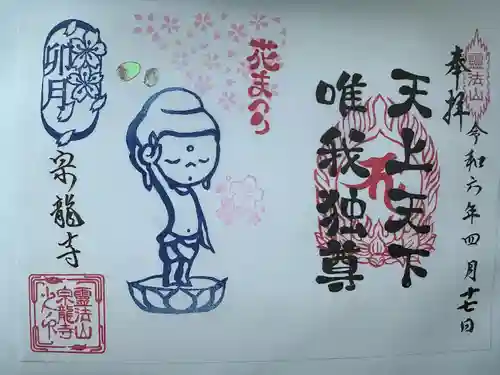 靈法山
奉拝
令和六年四月十七日
天上天下
唯我独尊
花まつり
卯月
宗龍寺
靈法山
宗龍寺
之印